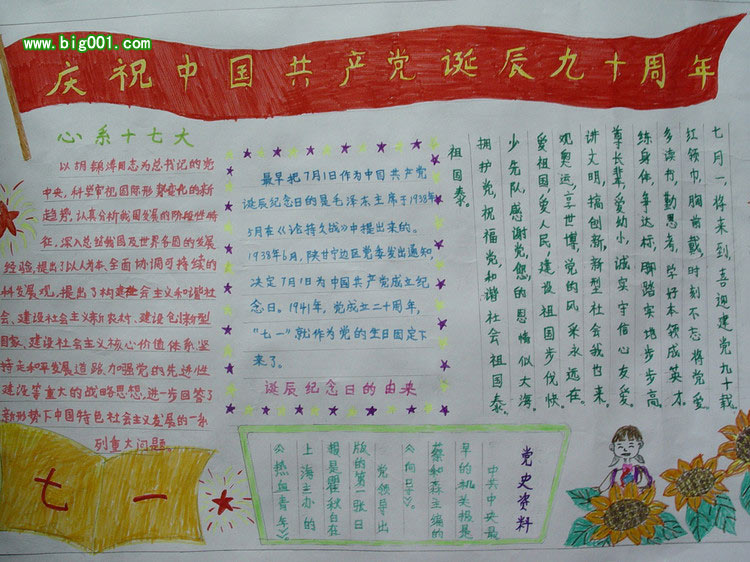 www.big001.com
庆祝中国共产党诞辰九十周年
心系十七大
以胡锦涛同志为总书记的党
中央,科学审视国际形势变化的新
趋势,认真分析我国发展的阶段性特
征,深入总结我国及世界各国的发展
经验,提出了以人为本、全面协调可持续的
科发展观,提出了构建社会主义和谐社
会、建设社会主义新农村、建设创新型
国家、建设社会主义核心价值体系、坚
持走和平发展道路、加强党的先进性
建设等重大的战略思想,进一步回答了
新形势下中国特色社会主义发展的一系
列重大问题。
七一
最早把7月1日作为中国共产党
诞辰纪念日的是毛泽东主席于1938年
5月在《论持久战》中提出来的。
1938年6月,陕甘宁边区党委发出通知,
决定7月1日为中国共产党成立纪
念日。1941年,党成立二十周年,
“七一”就作为党的生日固定下
来了。
诞辰纪念日的由来
七月一,将来到,喜迎建党九十载,
红领巾,胸前戴,时刻不忘将党爱,
多读书,勤思考,学好本领成英才,
练身体,争达标,脚踏实地步步高,
尊长辈,爱幼小,诚实守信心友爱。
讲文明,搞创新,新型社会我也来。
观奥运,享世博,党的风采永远在。
爱祖国,爱人民,建设祖国步伐快。
少先队,感谢党,您的恩情似大海。
拥护党,祝福党和谐社会祖国泰。
祖国泰。
党史资料
中共中央最
早的机关报是
蔡和森主编的
《向导》。
党领导出
版的第一张日
报是瞿秋白在
上海主办的
《热血青年》